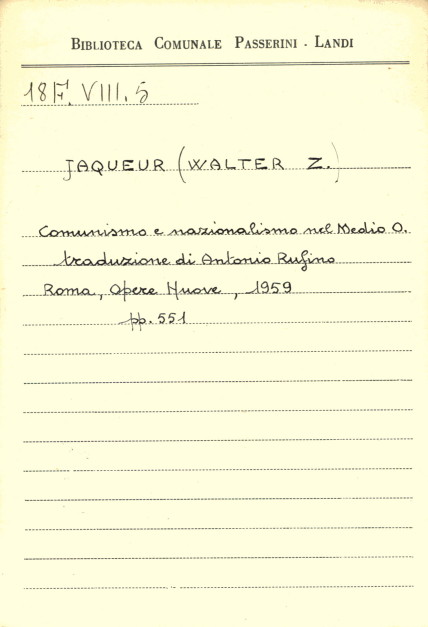 BIBLIOTECA COMUNALE PASSERINI - LANDI
18F. VIII. 5
JAQUEUR (WALTER Z.)
Comunismo e nazionalismo nel Medio O.
traduzione di Antonio Rufino
Roma, Opere Nuove, 1959
pp. 551